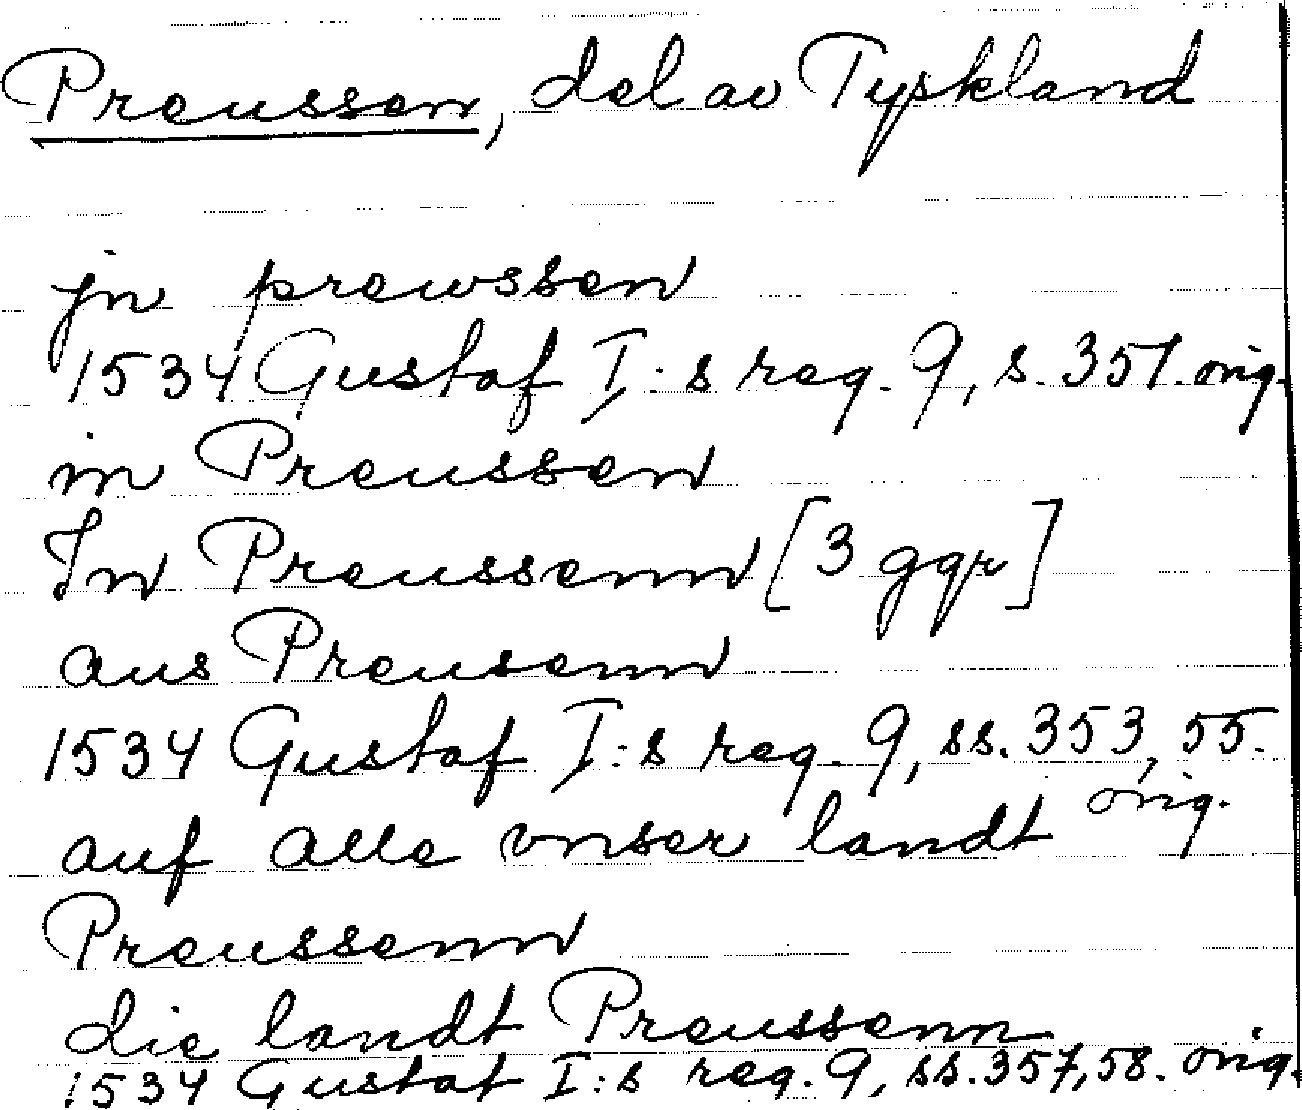 Preussen, del av Tyskland
jn prewssen
1534 Gustaf I:s reg. 9, s. 351. orig.
in Preussen
In Preussenn [3 ggr]
aus Preusenn
1534 Gustaf I:s reg. 9, ss. 353, 55.
orig.
auf alle vnser landt
Preussenn
die landt Preussenn
1534 Gustaf I:s reg. 9, ss. 357, 58. orig.